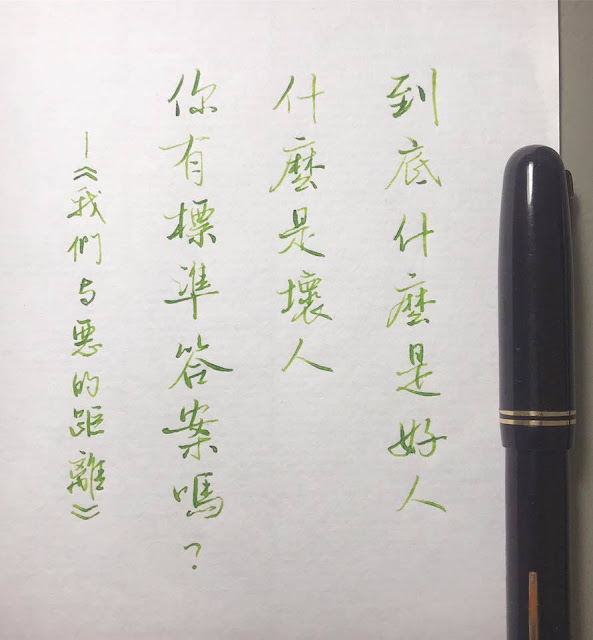 到底什麼是好人
什麼是壞人
你有標準答案嗎?
—《我們与惡的距離》